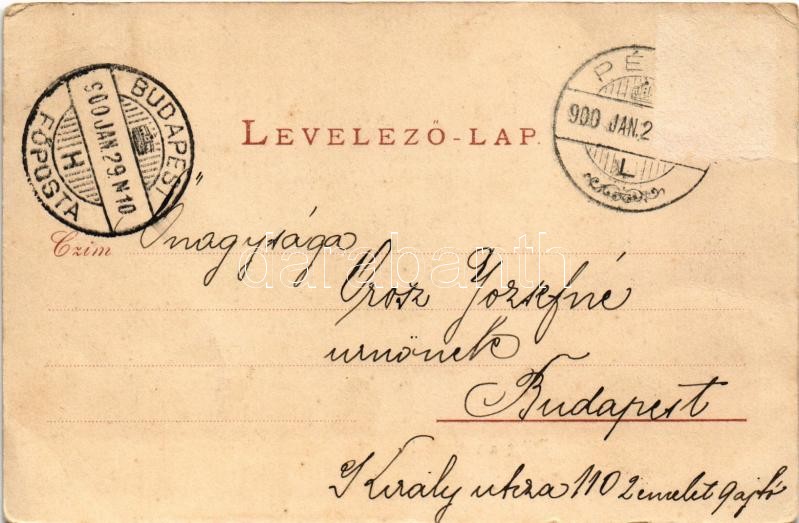 BUDAPEST
900 JAN. 29. N10
H
FŐPOSTA
900 JAN. 2
L
LEVELEZŐ-LAP.
Czim
Őnagysága
Orosz Józsefné
urnőnek
Budapest
Király utcza 110 2 emelet 9 ajtó
darabanth